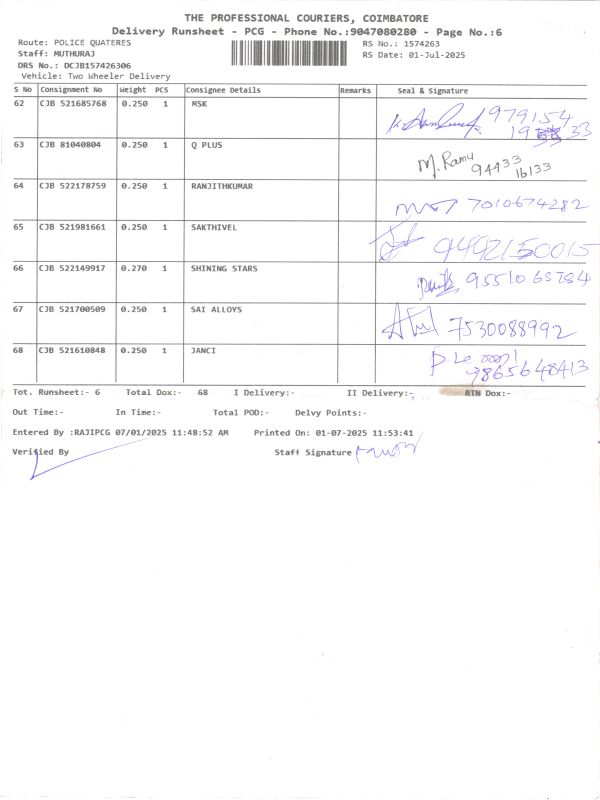 THE PROFESSIONAL COURIERS, COIMBATORE
Delivery Runsheet - PCG - Phone No.:9047080280 - Page No.:6
Route: POLICE QUATERES RS No.: 1574263
Staff: MUTHURAJ RS Date: 01-Jul-2025
DRS No.: DCJB157426306
Vehicle: Two Wheeler Delivery
S No Consignment No Weight PCS Consignee Details Remarks Seal & Signature
62 CJB 521685768 0.250 1 MSK 979154
33
63 CJB 81040804 0.250 1 Q PLUS M. Ramu 94433
16133
64 CJB 522178759 0.250 1 RANJITHKUMAR 7010674282
65 CJB 521981661 0.250 1 SAKTHIVEL
66 CJB 522149917 0.270 1 SHINING STARS
67 CJB 521700509 0.250 1 SAI ALLOYS 7530088992
68 CJB 521610848 0.250 1 JANCI
9865648413
Tot. Runsheet:- 6 Total Dox:- 68 I Delivery:- II Delivery:- RTN Dox:-
Out Time:- In Time:- Total POD:- Delvy Points:-
Entered By :RAJIPCG 07/01/2025 11:48:52 AM Printed On: 01-07-2025 11:53:41
Verified By Staff Signature